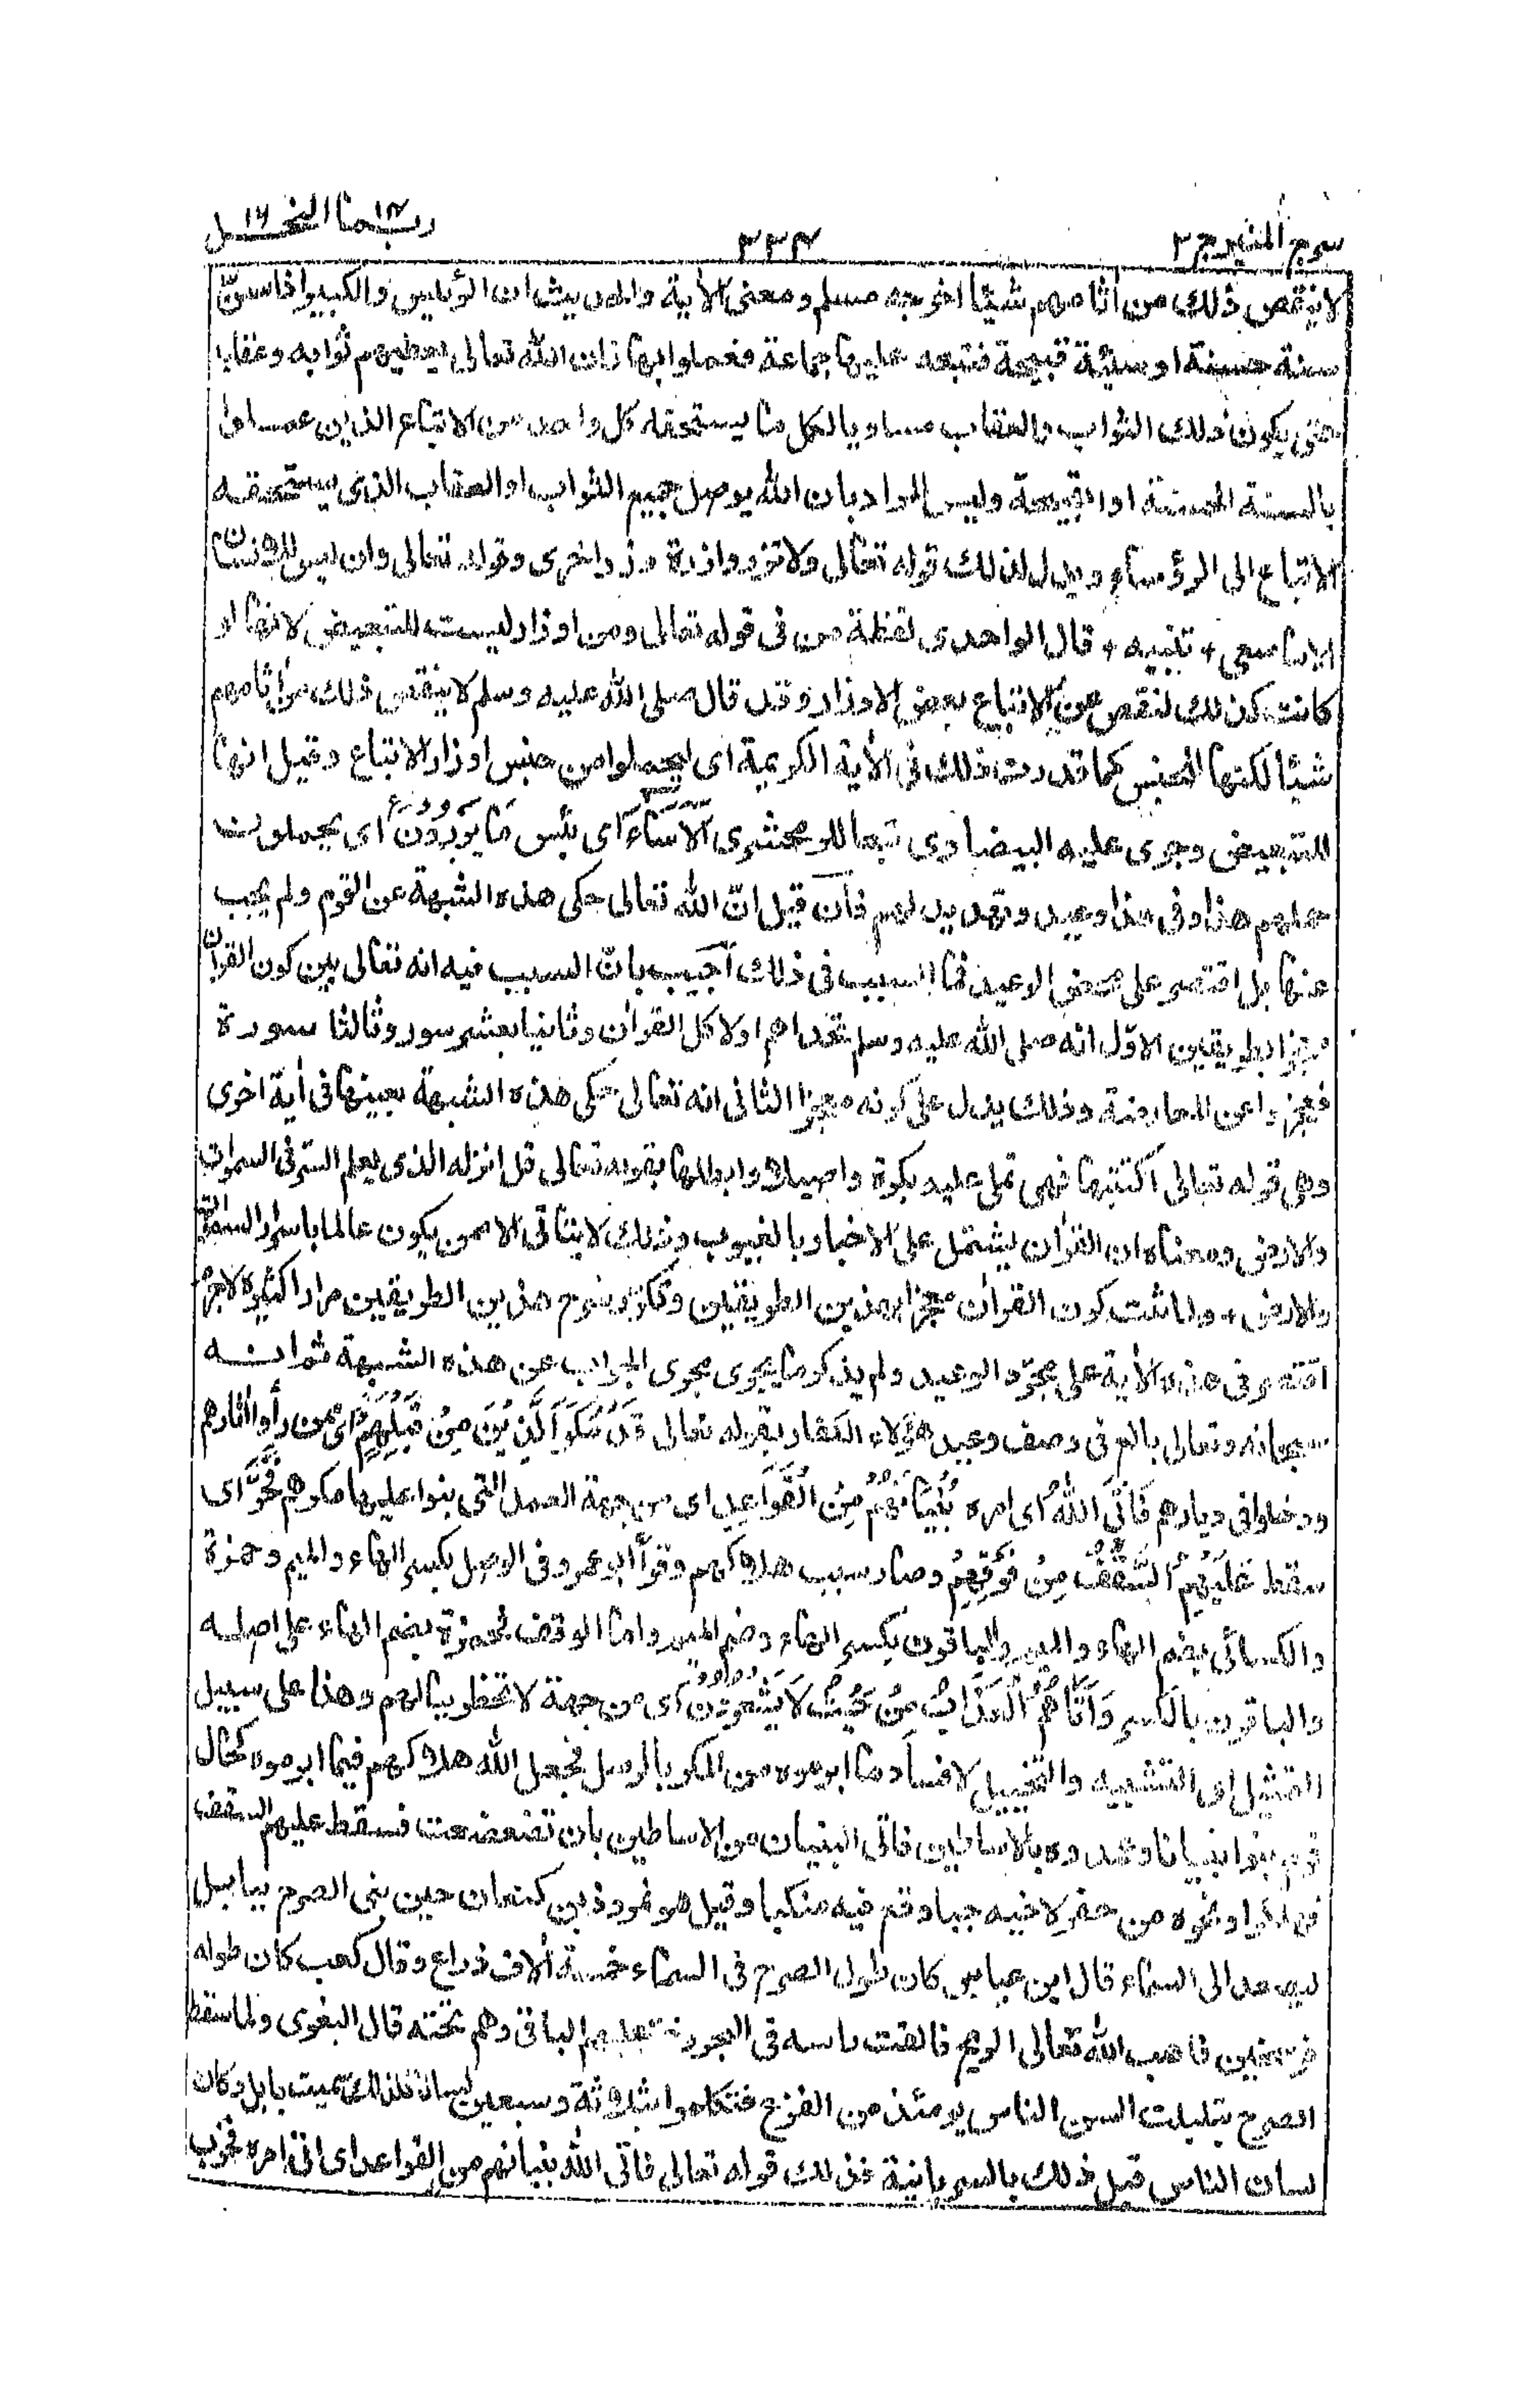 سرج المنير ج ٢ ٣٣٤ ربما ١٤ النحل ١٦
لا ينقص ذلك من اثامهم شيئا اخرجه مسلم ومعنى الاية والحديث ان الرئيس والكبير اذا سنّ
سنة حسنة او سيئة قبيحة فتبعه عليها جماعة فعملوا بها فان الله تعالى يعطيهم ثوابه وعقابه
حتى يكون ذلك الثواب والعقاب مساويا لكل ما يستحقه كل واحد من الاتباع الذين عملوا
بالسنة الحسنة او القبيحة وليس المراد بان الله يوصل جميع الثواب او العقاب الذى يستحقه
الاتباع الى الرؤساء ويدل لذلك قوله تعالى ولا تزر وازرة وزر اخرى وقوله تعالى وان ليس للانسان
الا ما سعى + تنبيه + قال الواحدى لفظة من فى قوله تعالى ومن اوزار ليست للتبعيض لانها لو
كانت كذلك لنقص عن الاتباع بعض الاوزار وقد قال صلى الله عليه وسلم لا ينقص ذلك من اثامهم
شيئا لكنها للجنس كما قدرت ذلك فى الأية الكريمة اى ليحملوا من جنس اوزار الاتباع وقيل انها
للتبعيض وجرى عليه البيضاوى تبعا للزمخشرى اَلَا سَاءَ اى بئس مَا يَزِرُونَ اى يحملون
حملهم هذا وفى هذا وعيد وتهديد لهم فان قيل انّ الله تعالى حكى هذه الشبهة عن القوم ولم يجب
عنها بل اقتصر على محض الوعيد فما السبب فى ذلك اجيب بانّ السبب فيه انه تعالى بين كون القرآن
معجزا بطريقين الاوّل انه صلى الله عليه وسلم تحداهم اولا كل القرأن وثانيا بعشر سور وثالثا سورة
فعجزوا عن المعارضة وذلك يدل على كونه معجزا الثانى انه تعالى حكى هذه الشبهة بعينها فى أية اخرى
وهى قوله تعالى اكتتبها فهى تملى عليه بكرة واصيلا وابطلها بقوله تعالى قل انزله الذى يعلم السرّ فى السموات
والارض ومعناه ان القرأن يشتمل على الاخبار بالغيوب وذلك لا يتأتى الا ممن يكون عالما باسرار السموات
والارض + ولما ثبت كون القرأن معجزا بهذين الطريقين وتكرّر شرح هذين الطريقين مرارا كثيرة لاجرم
اقتصر فى هذه الأية على مجرّد الوعيد ولم يذكر ما يجرى مجرى الجواب عن هذه الشبهة ثم انه
سبحانه وتعالى بالغ فى وصف وعيد هؤلاء الكفار بقوله تعالى قَدْ مَكَرَ الَّذِيْنَ مِنْ قَبْلِهِمْ اى ممن رأوا اثارهم
ودخلوا فى ديارهم فَاَتَى اللّٰهُ اى امره بُنْيَانَهُمْ مِنَ الْقَوَاعِدِ اى من جهة العمد التى بنوا عليها مكرهم فَخَرَّ اى
سقط عَلَيْهِمُ السَّقْفُ مِنْ فَوْقِهِمْ وصار سبب هلاكهم وقرأ ابو عمرو فى الوصل بكسر الهاء والميم وحمزة
والكسائى بضم الهاء والميم والباقون بكسر الهاء وضم الميم واما الوقف فحمزة بضم الهاء على اصله
والباقون بالكسر وَاَتَاهُمُ الْعَذَابُ مِنْ حَيْثُ لَا يَشْعُرُوْنَ اى من جهة لا تخطر ببالهم وهذا على سبيل
التمثيل اى التشبيه والتخييل لافساد ما ابرموه من المكر بالرسل فجعل الله هلاكهم فيما ابرموه كحال
قوم بنوا بنيانا وعمدوه بالاساطين فاتى البنيان من الاساطين بان تضعضعت فسقط عليهم السقف
فهلكوا ونحوه من حفر لاخيه جبا وقع فيه منكبا وقيل هو نمروذ بن كنعان حين بنى الصرح ببابل
ليصعد الى السماء قال ابن عباس كان طول الصرح فى السماء خمسة ألاف ذراع وقال كعب كان طوله
فرسخين فاهب الله تعالى الريح فالقت راسه فى البحر وخر عليهم الباقى وهم تحته قال البغوى ولما سقط
الصرح تبلبلت السن الناس يومئذ من الفزع فتكلموا بثلاثة وسبعين لسانا فلذلك سميت بابل وكان
لسان الناس قبل ذلك بالسريانية فذلك قوله تعالى فاتى الله بنيانهم من القواعد اى اتى امره فخرب